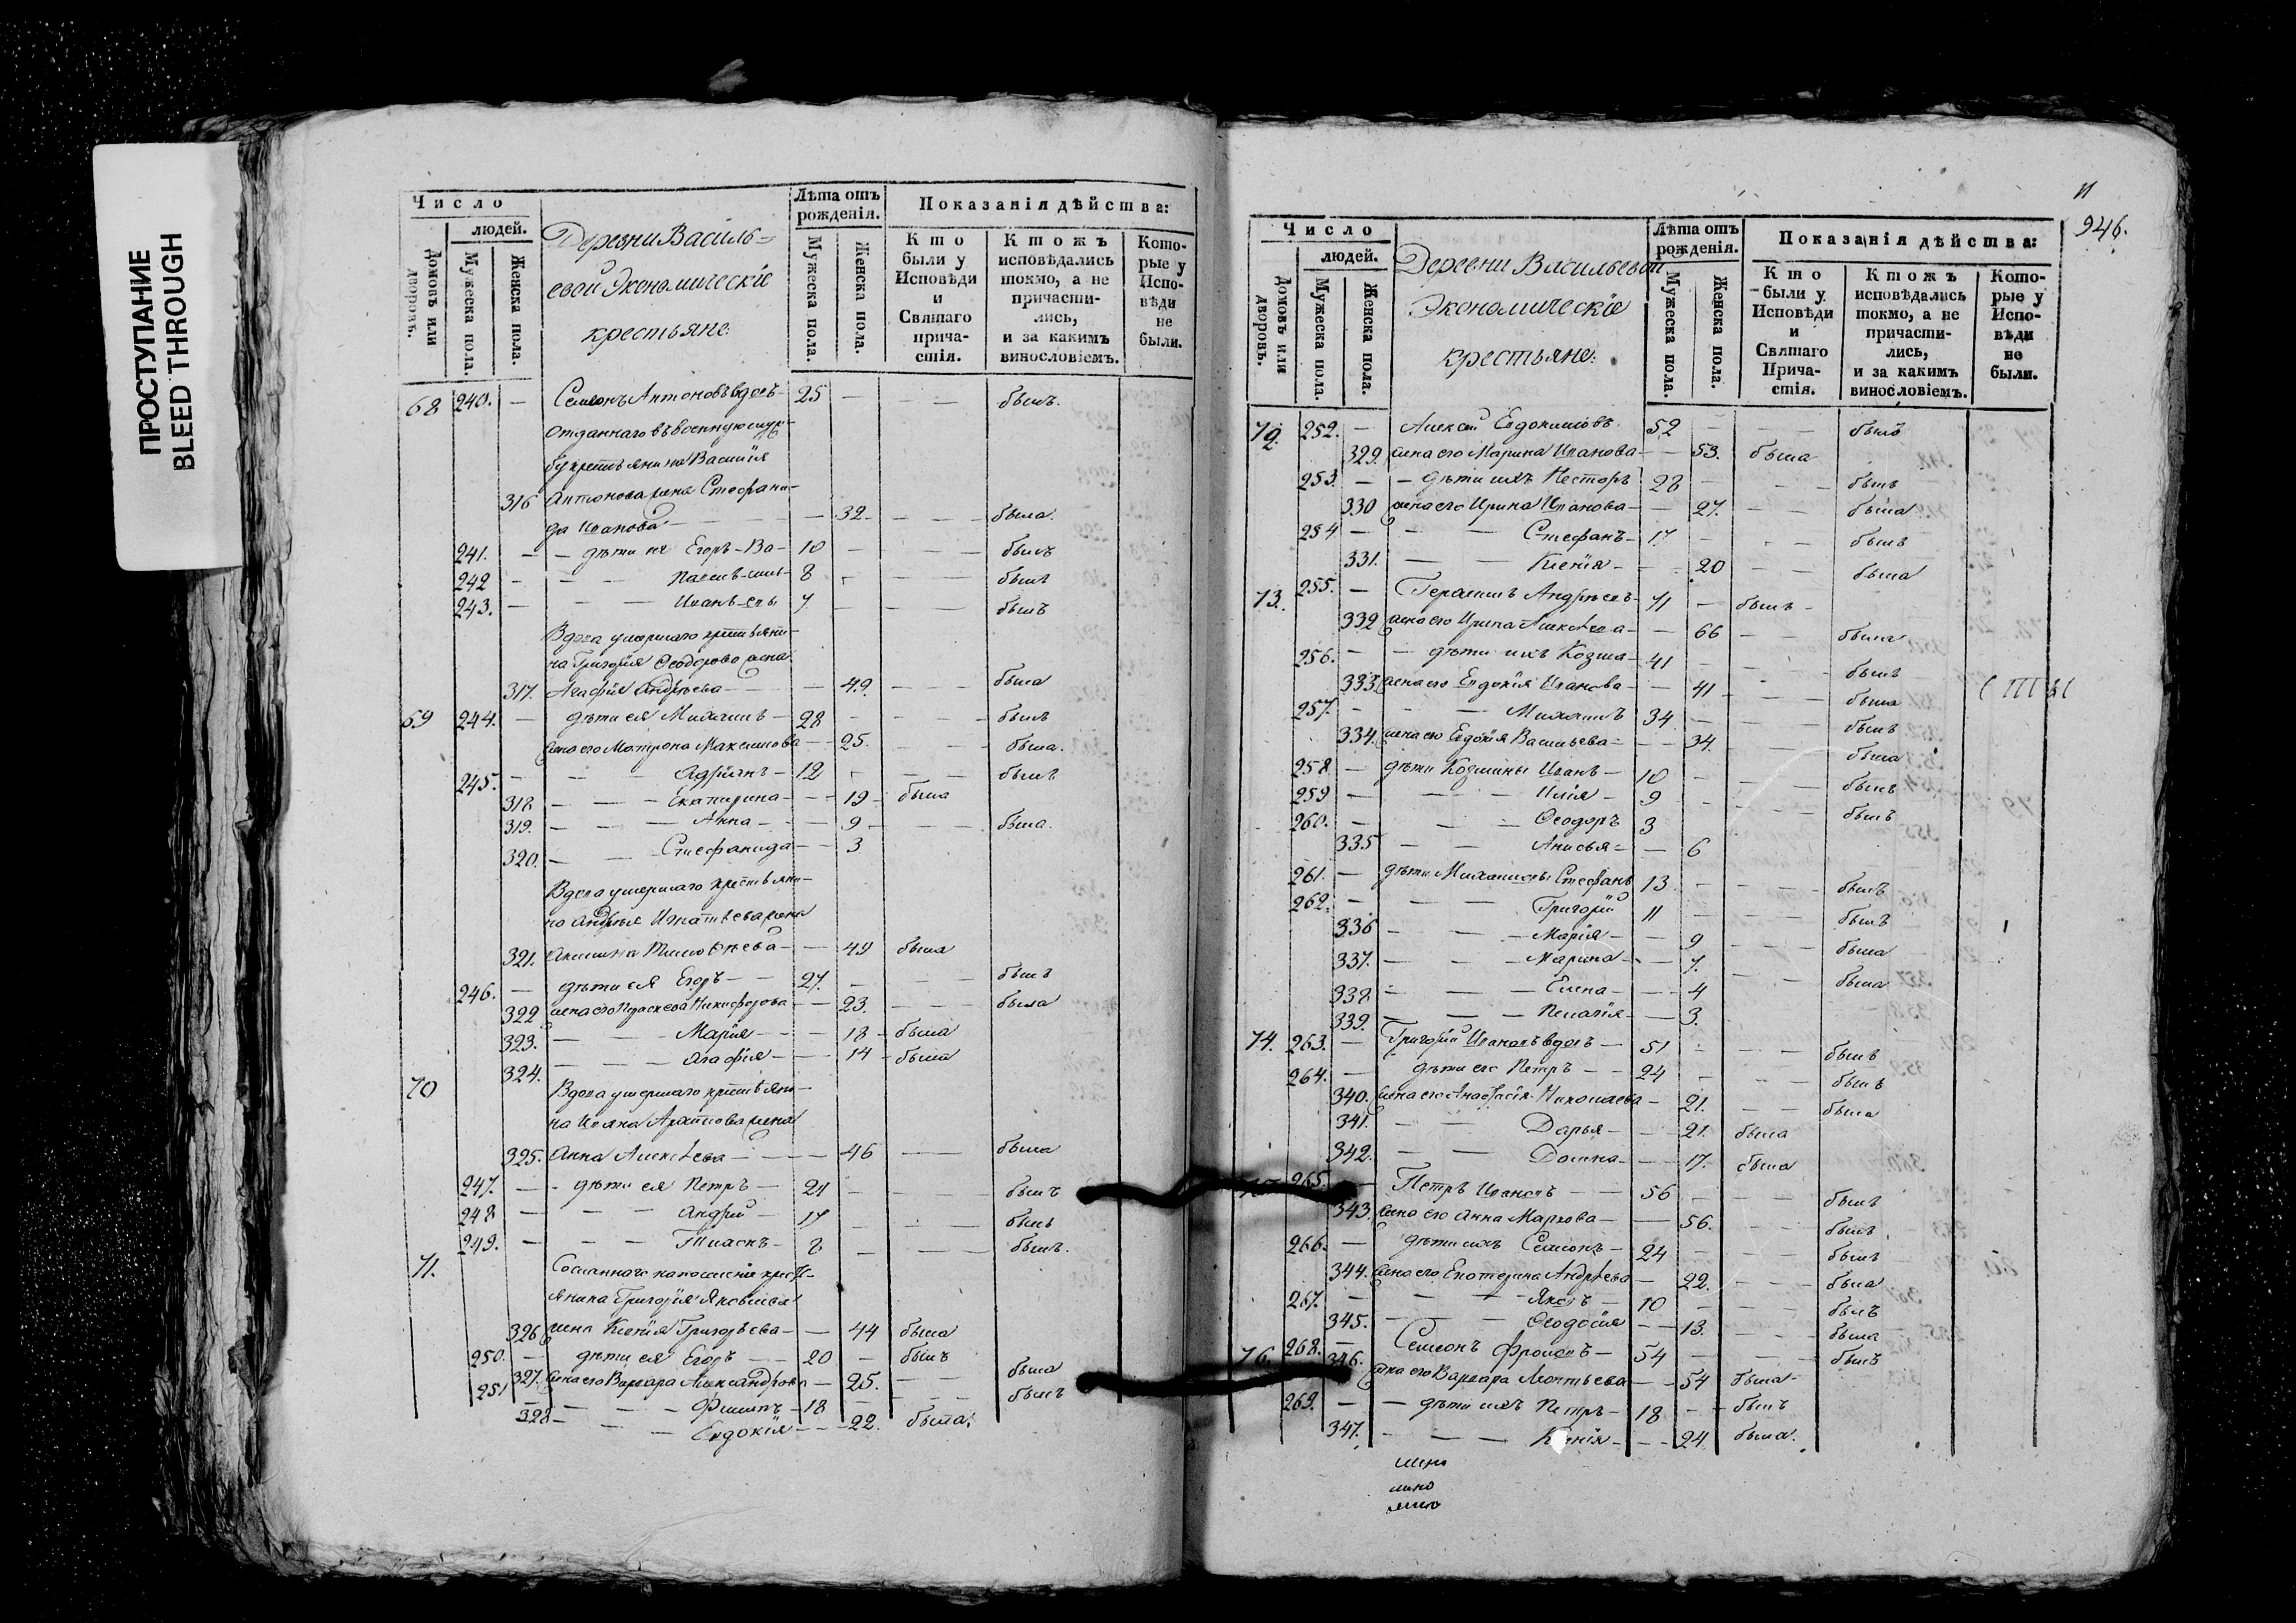 ПРОСТУПАНИЕ
BLEED THROUGH
Число
людей.
Домовъ или дворовъ.
Мужеска пола.
Женска пола.
Деревни Василь=
евой Экономическіе
крестьяне:
Лѣта отъ рожденія.
Мужеска пола.
Женска пола.
Показанія дѣйства:
Кто были у Исповѣди и Святаго причастія.
Ктожъ исповѣдались токмо, а не причастились, и за какимъ винословіемъ.
Которые у Исповѣди не были.
68 240. — Семеонъ Антоновъ вдовъ — 25 — — — былъ.
отданнаго въ военную служ-
бу крестьянина Василія
316 Антонова жена Стефани-
да Иванова — — 32 — — — была.
241. — — дѣти ея Егоръ — Ва- 10 — — — былъ
242 — — — Павелъ — силь- 8 — — — былъ
243. — — — Иванъ — евы 7 — — — былъ
Вдова умершаго крестьяни-
на Григорія Ѳеодорова жена
317. Агафія Андреева — — 49. — — была
69 244. — дѣти ея Михаилъ — 28 — — — былъ
жена его Матрона Максимова — — 25. — — — была.
245. — — — Адріанъ — 12 — — — былъ
318 — — — Екатерина — — — 19 — была
319. — — — Анна — — — 9 — — — была.
320. — — Стефанида — — 3
Вдова умершаго крестьяни-
на Андрея Игнатьева жена
321. Акилина Тимоѳеева — — 49 была
246. — дѣти ея Егоръ — — 27. — — — былъ
322 жена его Параскева Никифорова — — 23. — — — была
323. — — — Марія — — — 18 — была
324. — — — Агафія — — — 14 — была
70 Вдова умершаго крестьяни-
на Ивана Архипова жена
325. Анна Алексѣева — — — — 46 — — была
247. — — дѣти ея Петръ — 21 — — — былъ
248 — — — Андрей — 17 — — — былъ
249. — — — Тиханъ — 8 — — — былъ.
71. Сосланнаго на поселеніе кресть-
янина Григорія Яковлева
326 жена Ксенія Григорьева — — 44 была
250. — дѣти ея Егоръ — — 20 — былъ
327. жена его Варвара Александрова — 25. — — была
251 — — — Филипъ — 18 — — — былъ
328 — — — Евдокія — — — 22. была:
946.
Число
людей.
Домовъ или дворовъ.
Мужеска пола.
Женска пола.
Деревни Васильевой
Экономическіе
крестьяне:
Лѣта отъ рожденія.
Мужеска пола.
Женска пола.
Показанія дѣйства:
Кто были у Исповѣди и Святаго Причастія.
Ктожъ исповѣдались токмо, а не причастились, и за какимъ винословіемъ.
Которые у Исповѣди не были.
72. 252. — Алексей Евдокимовъ 52 — — — былъ
329. жена его Марина Иванова — — 53. была
253. — — дѣти ихъ Несторъ 28 — — — былъ
330 жена его Ирина Иванова — — 27. — — была
254 — — — Стефанъ — 17 — — — былъ
331. — — Ксенія — — 20 — — была
73. 255. — Герасимъ Андреевъ — 71 — былъ —
332 жена его Ирина Алексѣева — — 66 — — была
256. — — дѣти ихъ Козма — 41 — — — былъ
333. жена его Евдокія Иванова — — 41 — — была
257. — — — Михаилъ 34 — — — былъ
334. жена его Евдокія Васильева — — 34. — — была
258 — дѣти Козмины Иванъ — 10 — — — былъ
259 — — — Илія — 9 — — — былъ
260. — — — Ѳеодоръ 3
335 — — Анисья — — 6
261. — дѣти Михаиловы Стефанъ 13 — — — былъ
262. — — — Григорій 11 — — — былъ
336 — — — Марія — — 9 — — — была
337. — — — Марина — — 7. — — была
338. — — — Елена — — 4
339. — — — Пелагія — — 3.
74. 263. — Григорій Ивановъ вдовъ — 51 — — — былъ
264. — дѣти его Петръ — — 24 — — — былъ
340. жена его Анастасія Николаева — 21. — — была
341. — — Дарья — — 21. была
342. — — Домна — — 17. была
265. — Петръ Ивановъ — — 56 — — — былъ
343. жена его Анна Маркова — — 56. — — была
266. — дѣти ихъ Семеонъ — 24 — — — былъ
344. жена его Екатерина Андреева — 22. — — — была
267. — — — Яковъ — 10 — — — былъ
345. — — — Ѳеодосія — — 13. — — — была
76. 268. — Семеонъ Фроловъ — 54 — — — былъ
346. жена его Варвара Леонтьева — — 54 была —
269. — — дѣти ихъ Петръ — 18 — — былъ
347. — — — Ксенія — — — 24. была.